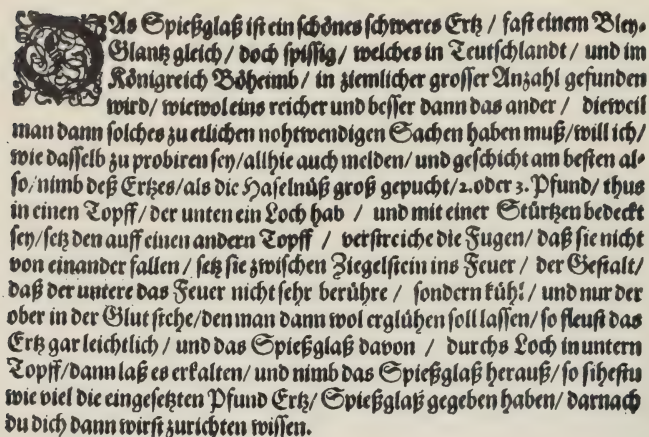 DAs Spießglaß ist ein schönes schweres Ertz / fast einem Bley-
Glantz gleich / doch spissig / welches in Teutschlandt / und im
Königreich Böheimb / in ziemlicher grosser Anzahl gefunden
wird / wiewol eins reicher und besser dann das ander / dieweil
man dann solches zu etlichen nohtwendigen Sachen haben muß / will ich /
wie dasselb zu probiren sey / allhie auch melden / und geschicht am besten al-
so / nimb deß Ertzes / als die Haselnüß groß gepucht / 2. oder 3. Pfund / thus
in einen Topff / der unten ein Loch hab / und mit einer Stürtzen bedeckt
sey / setz den auff einen andern Topff / verstreiche die Fugen / daß sie nicht
von einander fallen / setz sie zwischen Ziegelstein ins Feuer / der Gestalt /
daß der untere das Feuer nicht sehr berühre / sondern kühl / und nur der
ober in der Glut stehe / den man dann wol erglühen soll lassen / so fleust das
Ertz gar leichtlich / und das Spießglaß davon / durchs Loch in untern
Topff / dann laß es erkalten / und nimb das Spießglaß herauß / so sihestu
wie viel die eingesetzten Pfund Ertz / Spießglaß gegeben haben / darnach
du dich dann wirst zurichten wissen.